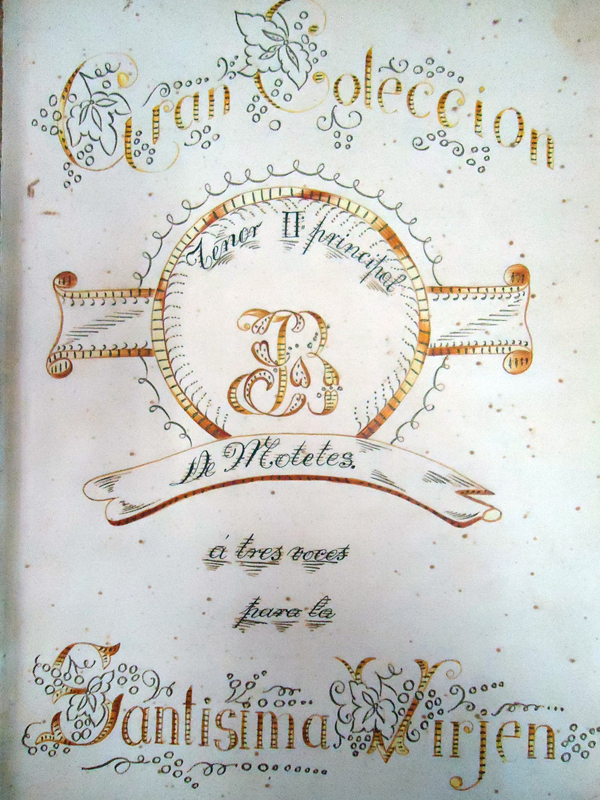 Gran Coleccion
Tenor II principal
JB
De Motetes.
á tres voces
para la
Santisima Virjen